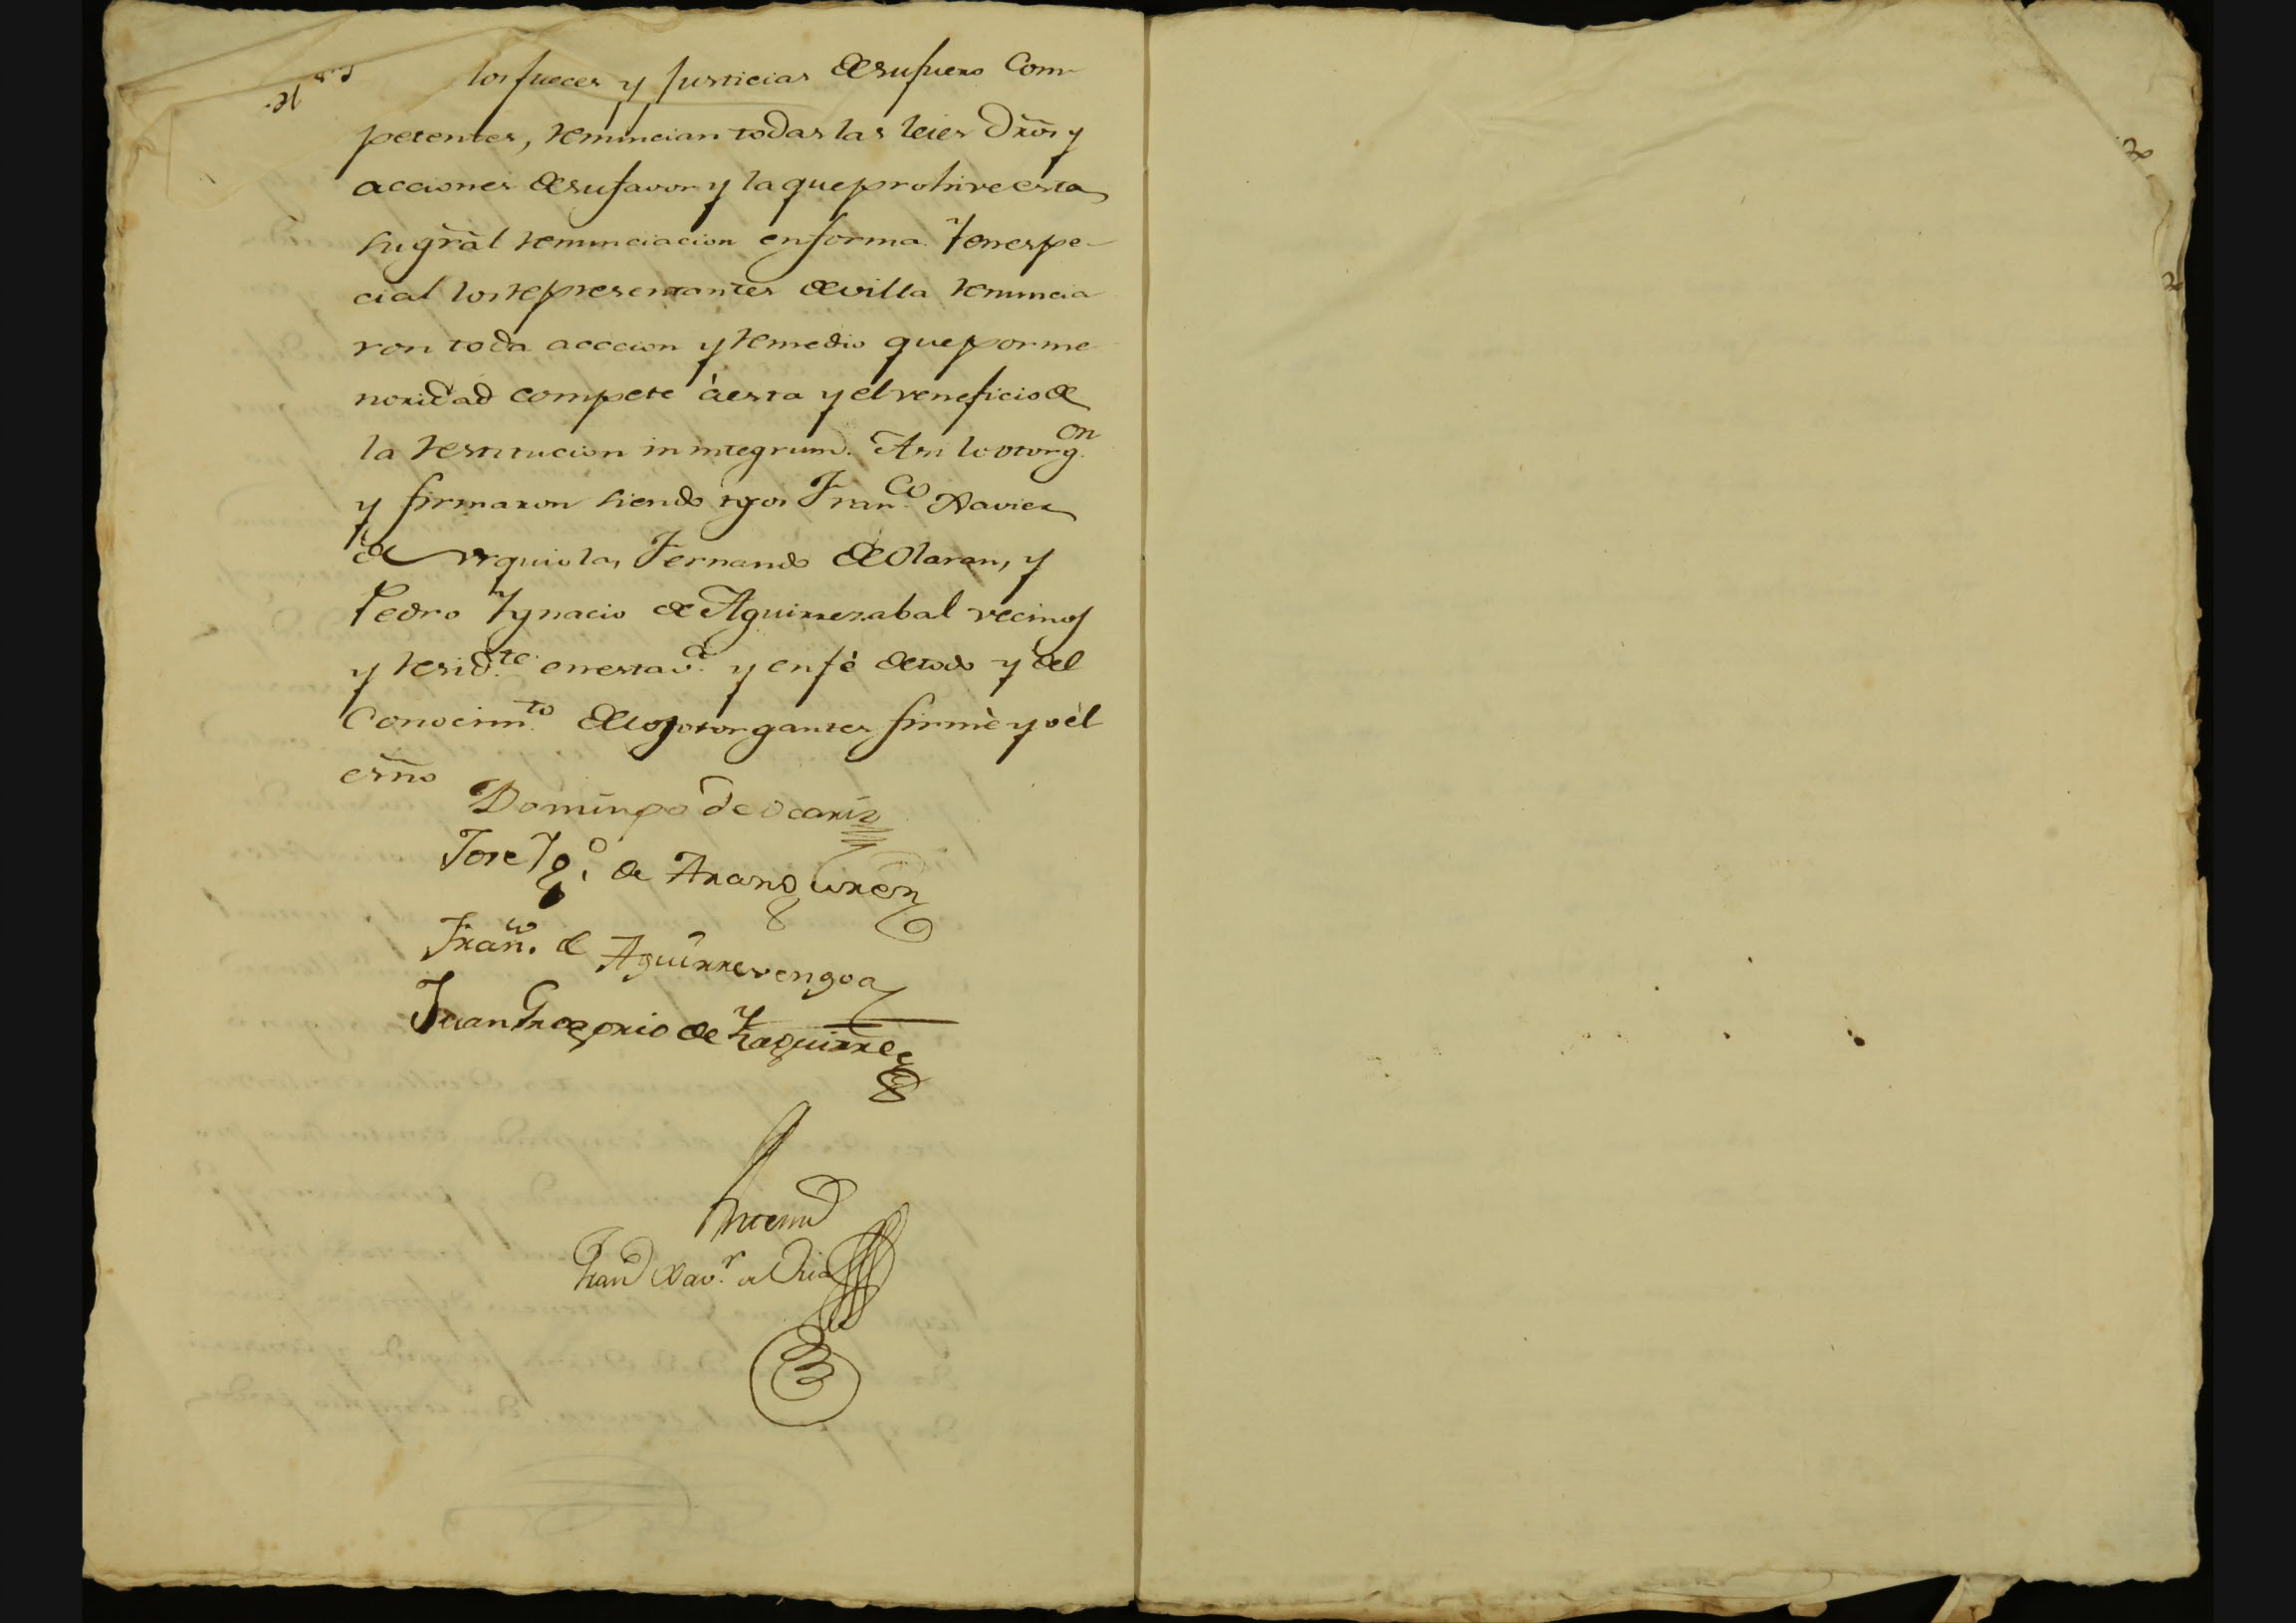 los Jueces y Justicias de su fuero Com-
petentes, renuncian todas las leies Drõs y
acciones de su favor y la que prohive esta
su grãl renunciacion en forma. Y en espe-
cial los representantes de villa renuncia
ron toda acccion y remedio que por me
noridad compete à esta y el veneficio de
la restitucion in integrum. Asi lo otorg.on
y firmaron siendo tgos Fran.co Xavier
de Urquiola, Fernando de Olaran, y
Pedro Ygnacio de Aguirrezabal vecinos
y resid.te en esta v.a y en fè de todo y del
Conocim.to de los otorgantes firmè yo èl
esño
Domingo de Ocariz
Jose Yg.o de Aranguren
Fran.co de Aguirrevengoa
Juan Gregorio de Yzaguirre
Antemi
Fran.co Xav.r de Oria